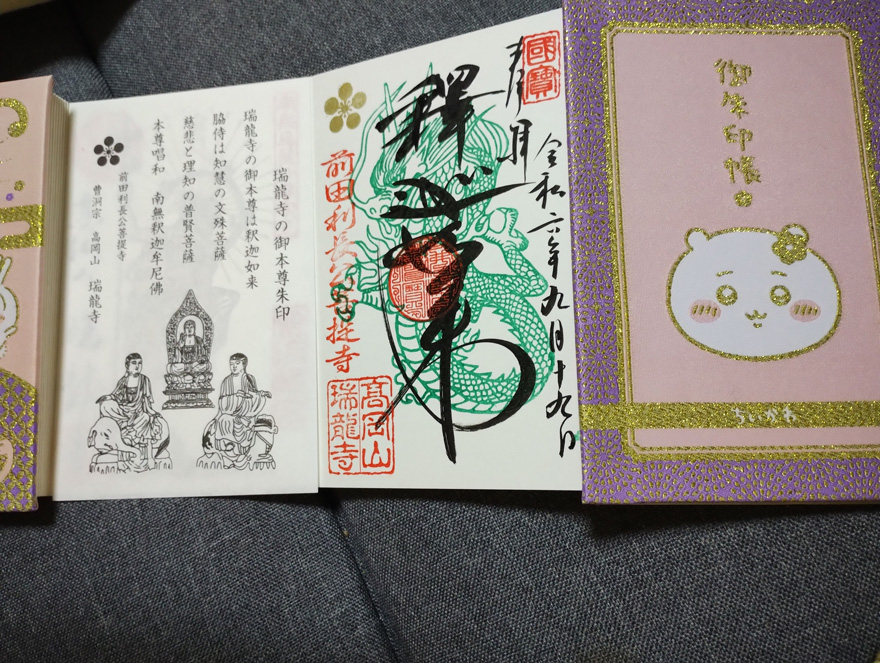 御朱印帳
ちいかわ
國寶
令和六年九月十九日
前田利長公菩提寺
高岡山
瑞龍寺
瑞龍寺の御本尊朱印
瑞龍寺の御本尊は釈迦如来
脇侍は知慧の文殊菩薩
慈悲と理知の普賢菩薩
本尊唱和 南無釈迦牟尼佛
前田利長公菩提寺
曹洞宗 高岡山 瑞龍寺